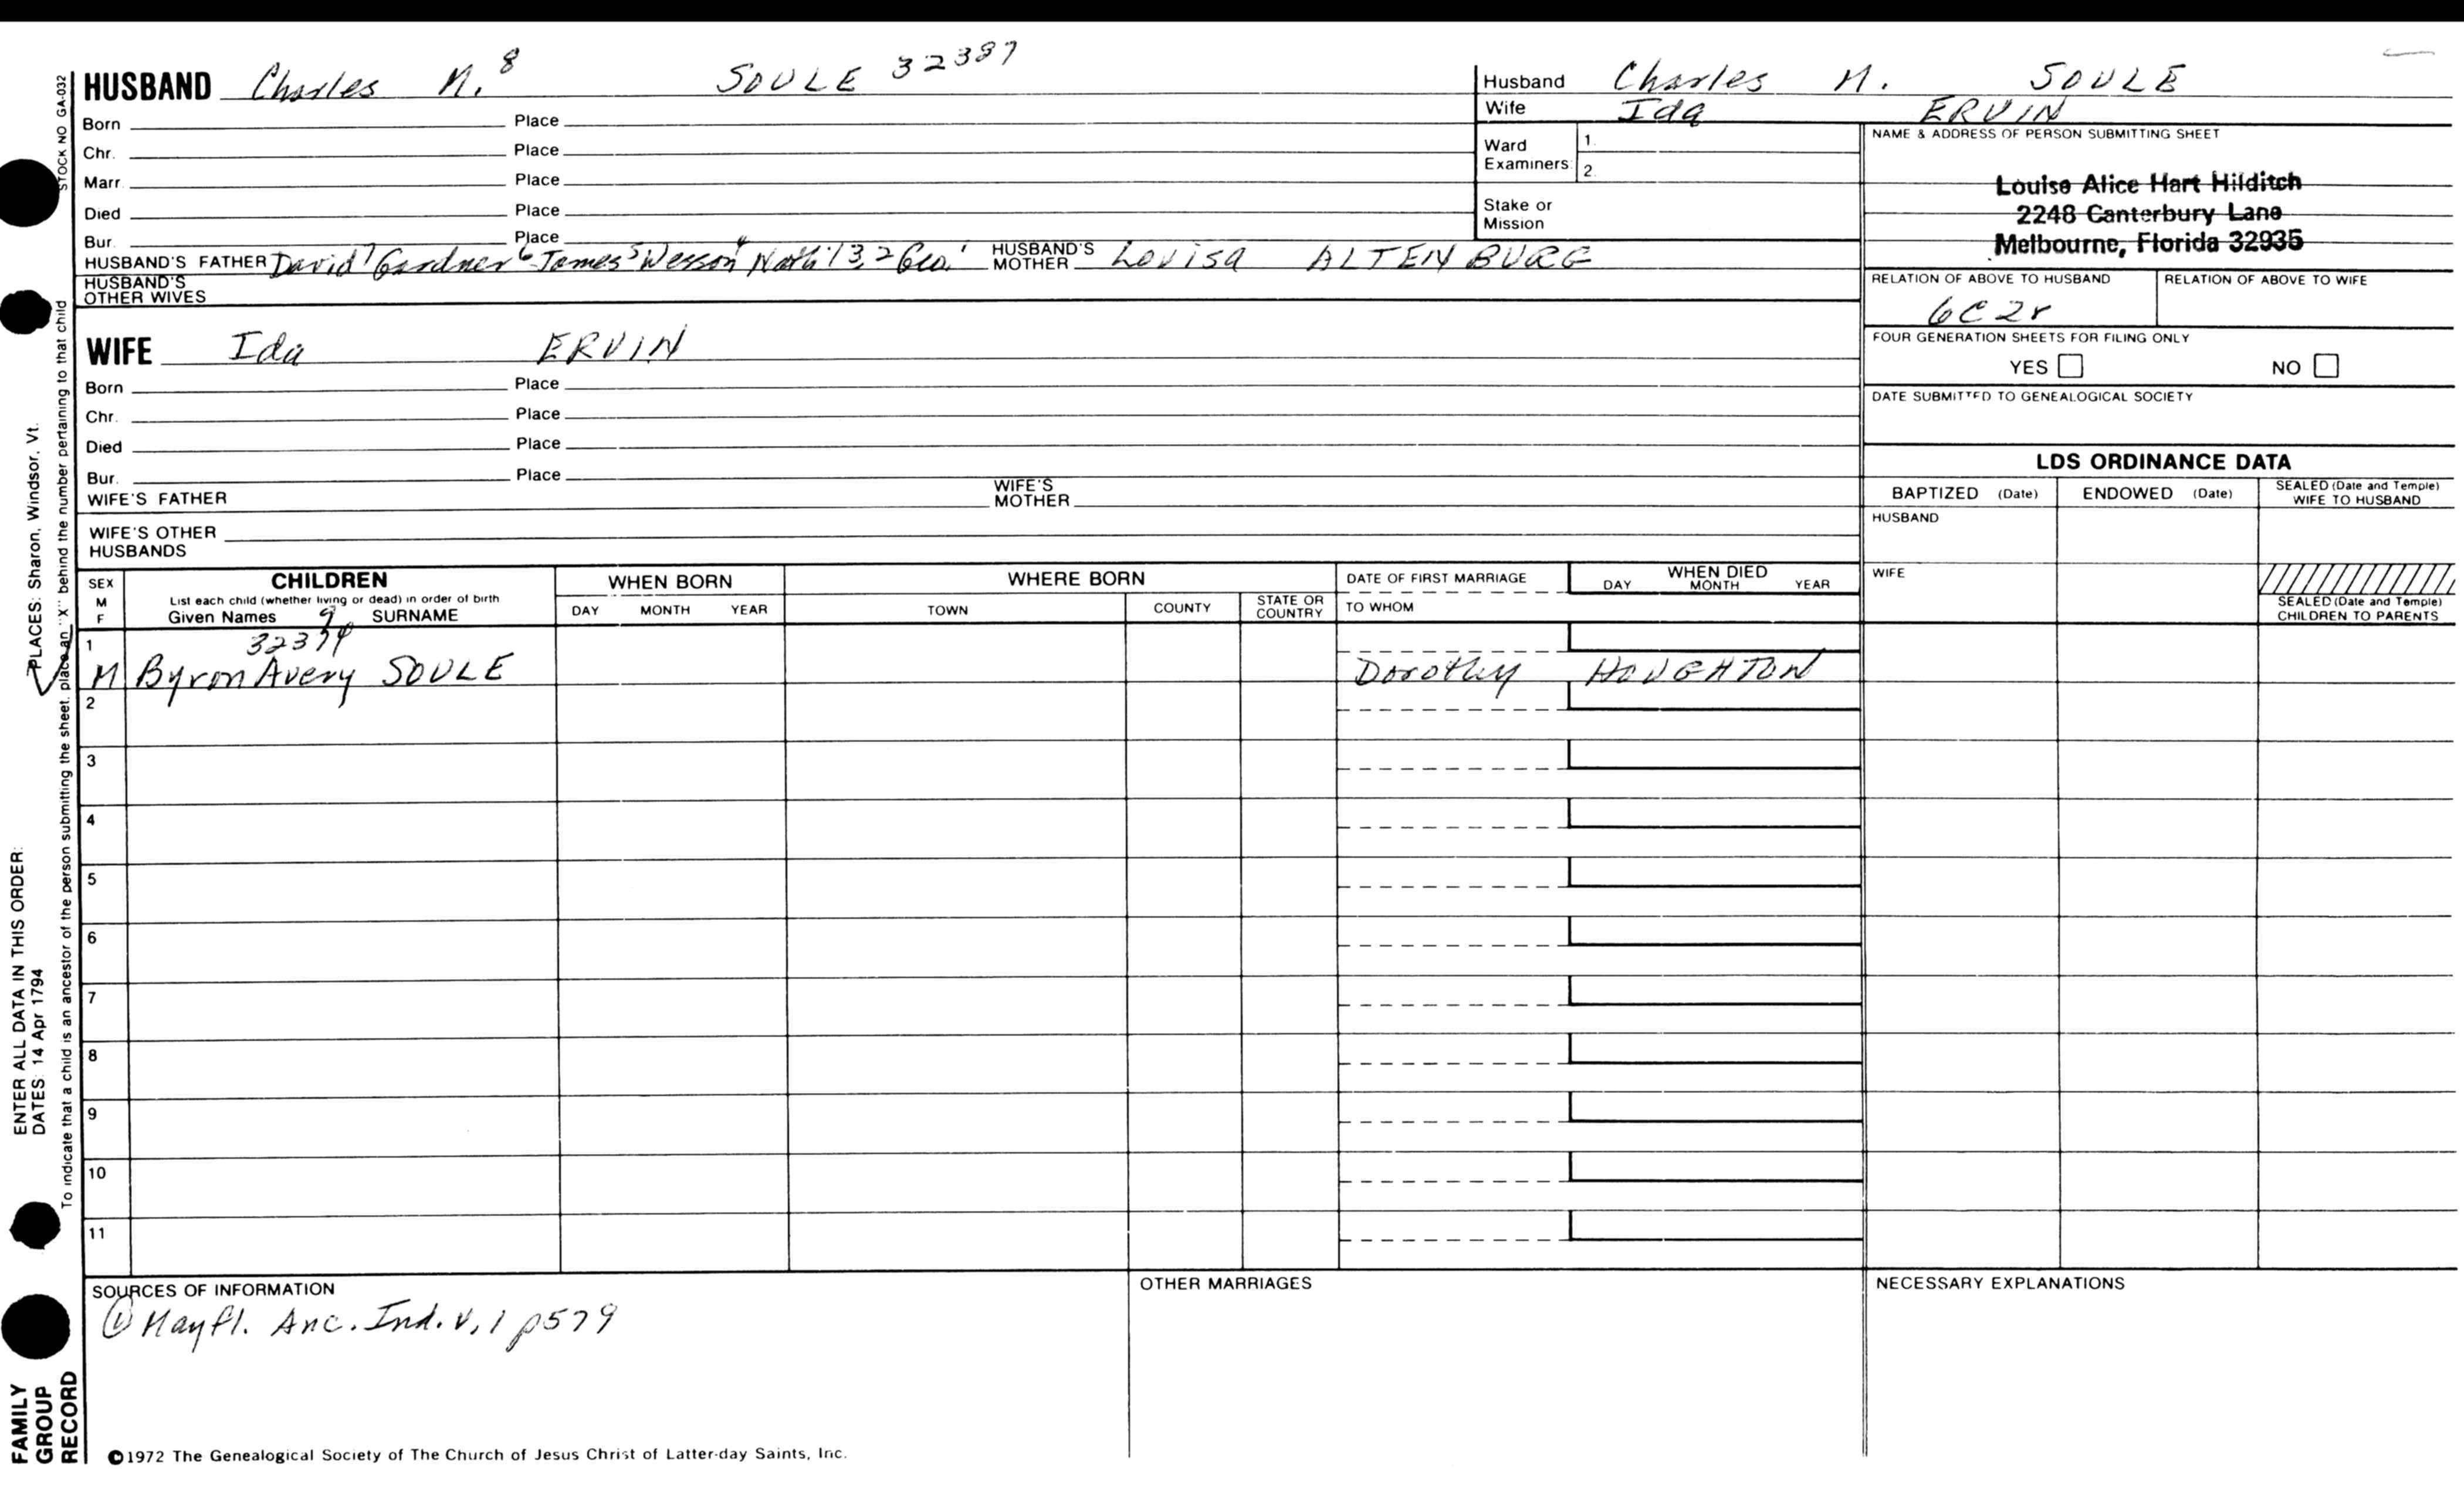 HUSBAND Charles M.⁸ SOULE 32387
Born Place
Chr. Place
Marr. Place
Died Place
Bur. Place
HUSBAND'S FATHER David⁷ Gardner⁶ James⁵ Wesson⁴ Nath'l 3,2 Geo.¹ HUSBAND'S MOTHER Louisa ALTENBURG
HUSBAND'S OTHER WIVES
WIFE Ida ERVIN
Born Place
Chr. Place
Died Place
Bur. Place
WIFE'S FATHER WIFE'S MOTHER
WIFE'S OTHER HUSBANDS
Husband Charles M. SOULE
Wife Ida ERVIN
Ward Examiners: 1. 2.
Stake or Mission
NAME & ADDRESS OF PERSON SUBMITTING SHEET
Louise Alice Hart Hilditch
2248 Canterbury Lane
Melbourne, Florida 32935
RELATION OF ABOVE TO HUSBAND RELATION OF ABOVE TO WIFE
6C2r
FOUR GENERATION SHEETS FOR FILING ONLY
YES NO
DATE SUBMITTED TO GENEALOGICAL SOCIETY
LDS ORDINANCE DATA
BAPTIZED (Date) ENDOWED (Date) SEALED (Date and Temple) WIFE TO HUSBAND
HUSBAND
WIFE
SEALED (Date and Temple) CHILDREN TO PARENTS
SEX M F
CHILDREN
List each child (whether living or dead) in order of birth
Given Names SURNAME
WHEN BORN
DAY MONTH YEAR
WHERE BORN
TOWN COUNTY STATE OR COUNTRY
DATE OF FIRST MARRIAGE
TO WHOM
WHEN DIED
DAY MONTH YEAR
1
M Byron Avery SOULE Dorothy HOUGHTON
2
3
4
5
6
7
8
9
10
11
SOURCES OF INFORMATION
① Mayfl. Anc. Ind. V, 1 p579
OTHER MARRIAGES
NECESSARY EXPLANATIONS
©1972 The Genealogical Society of The Church of Jesus Christ of Latter-day Saints, Inc.
STOCK NO GA-032
To indicate that a child is an ancestor of the person submitting the sheet, place an "X" behind the number pertaining to that child
ENTER ALL DATA IN THIS ORDER:
DATES: 14 Apr 1794
PLACES: Sharon, Windsor, Vt.
FAMILY
GROUP
RECORD